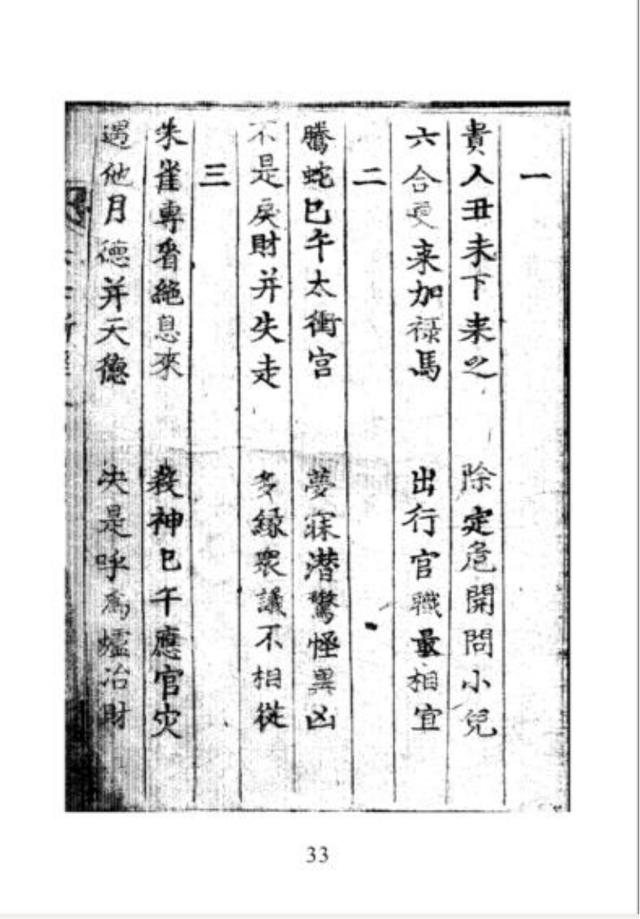 一
貴人丑未下来之 除定危開問小兒
六合更来加禄馬 出行官職最相宜
二
騰蛇巳午太衝宮 夢寐潜驚怪異凶
不是戾財并失走 多緣衆議不相從
三
朱雀專看絶息來 殺神巳午應官灾
遇他月德并天德 决是呼爲爐冶財
33